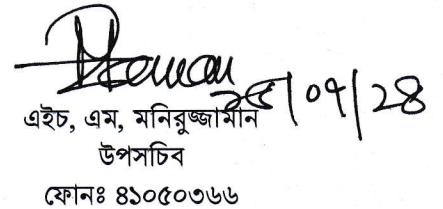 ২৫/০৭/২৪
এইচ, এম, মনিরুজ্জামান
উপসচিব
ফোনঃ ৪১০৫০৩৬৬